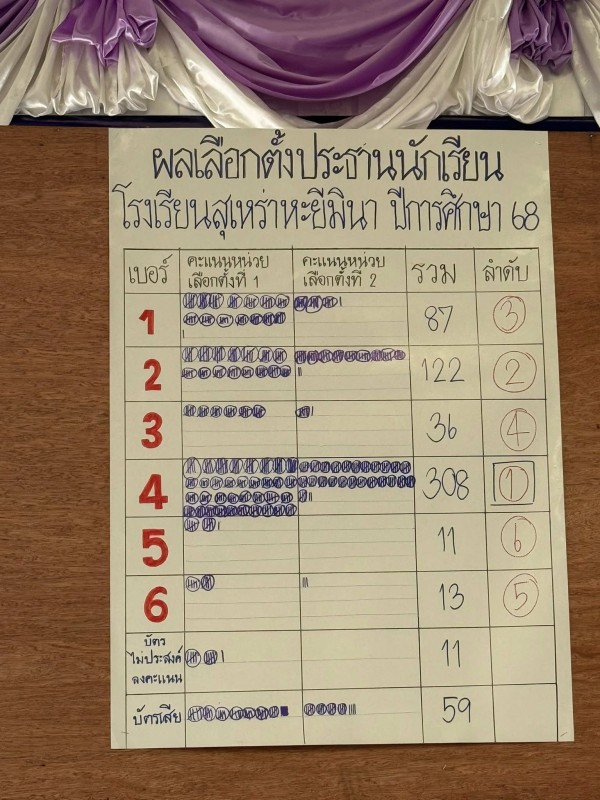 ผลเลือกตั้งประธานนักเรียน
โรงเรียนสุเหร่าหะยีมินา ปีการศึกษา 68
เบอร์ คะแนนหน่วยเลือกตั้งที่ 1 คะแนนหน่วยเลือกตั้งที่ 2 รวม ลำดับ
1 87 3
2 122 2
3 36 4
4 308 1
5 11 6
6 13 5
บัตร
ไม่ประสงค์
ลงคะแนน 11
บัตรเสีย 59